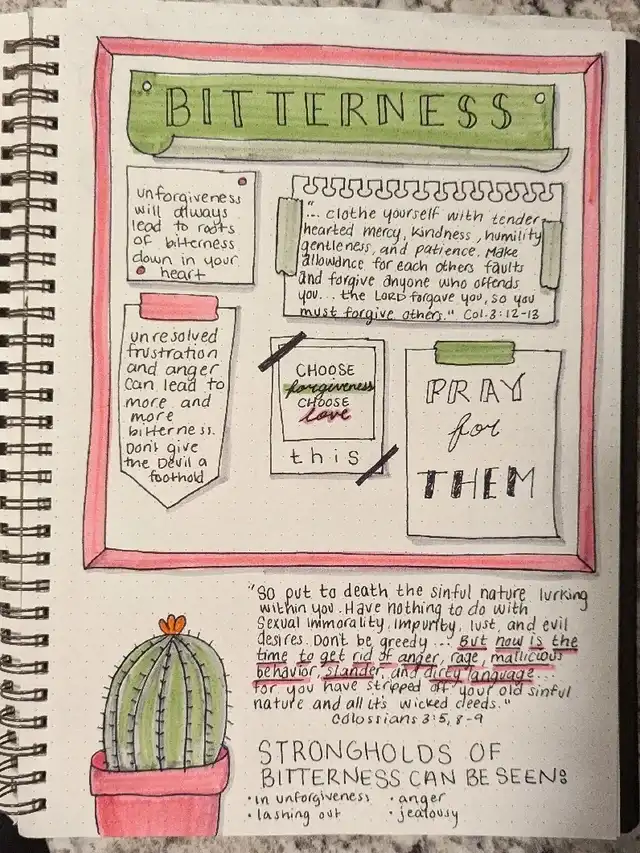 BITTERNESS
unforgiveness
will always
lead to roots
of bitterness
down in your
heart
"... clothe yourself with tender
hearted mercy, kindness, humility
gentleness, and patience. Make
allowance for each others faults
and forgive anyone who offends
you... the LORD forgave you, so you
must forgive others." Col. 3:12-13
unresolved
frustration
and anger
can lead to
more and
more
bitterness.
Don't give
the Devil a
foothold
CHOOSE
forgiveness
CHOOSE
love
this
PRAY
for
THEM
"So put to death the sinful nature lurking
within you. Have nothing to do with
Sexual Immorality, Impurity, lust, and evil
desires. Don't be greedy ... But now is the
time to get rid of anger, rage, mallicious
behavior, slander, and dirty language...
for you have stripped off your old sinful
nature and all it's wicked deeds."
Colossians 3:5, 8-9
STRONGHOLDS OF
BITTERNESS CAN BE SEEN:
• in unforgiveness • anger
• lashing out • jealousy